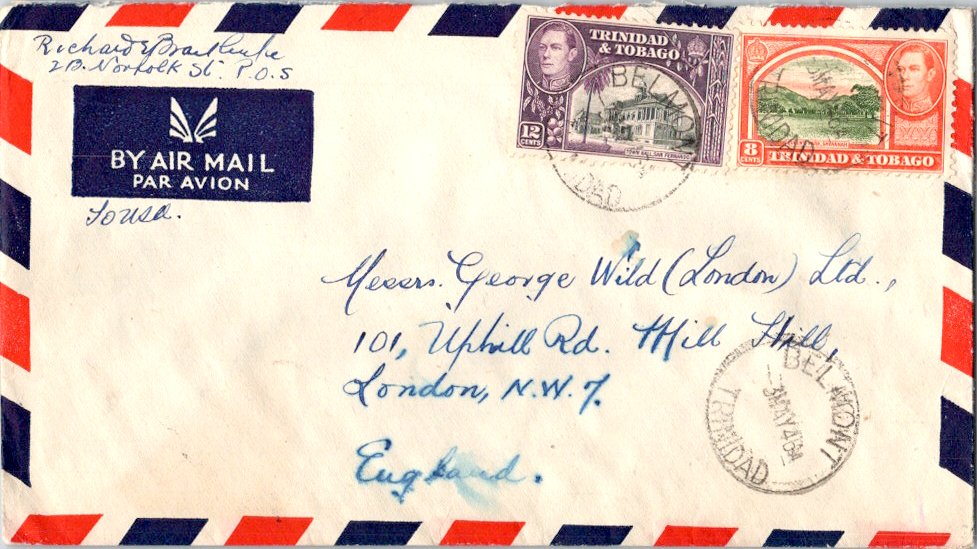 Richard
2B. Norfolk St. P.O.S
BY AIR MAIL
PAR AVION
TRINIDAD
& TOBAGO
12
CENTS
TOWN HALL, SAN FERNANDO
8
CENTS
TRINIDAD & TOBAGO
BELMONT
TRINIDAD
Messrs. George Wild (London) Ltd.,
101, Uphill Rd. Mill Hill,
London, N.W.7.
England.
BELMONT
MAY 46
TRINIDAD